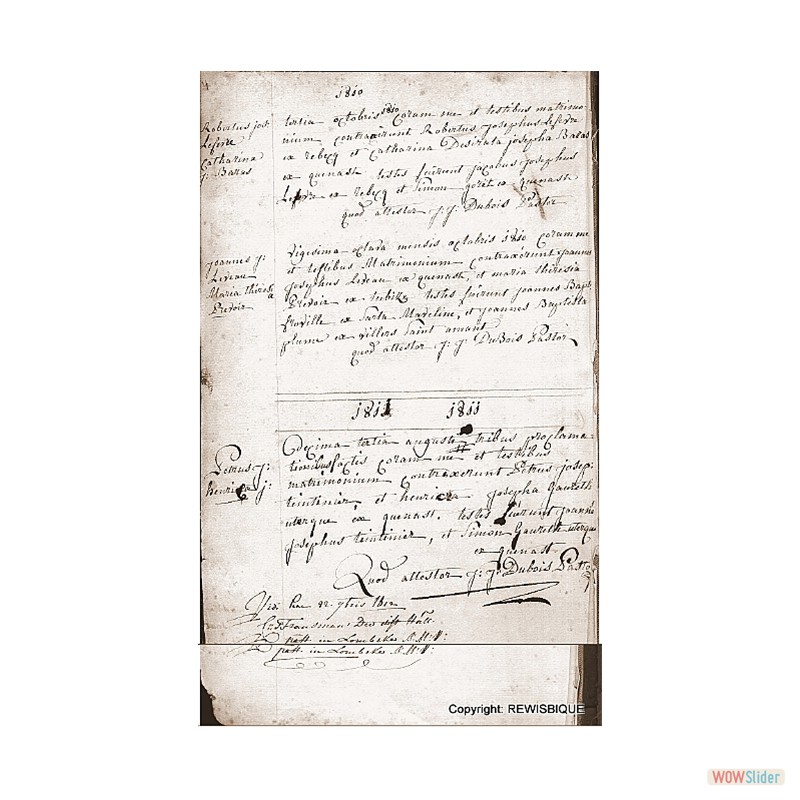 1810
Robertus jos:
Lefevre
Catharina
j: Baras
tertia octobris 1810 Coram me et testibus matrimo-
nium contraxerunt Robertus Josephus Lefevre
ex rebecq et Catharina Desirata josepha Baras
ex quenast testes fuerunt jacobus josephus
Lefevre ex rebecq et Simon goret ex quenast
quod attestor j: j: Dubois Pastor
Joannes j:
Ledeau
Maria theresia
Predoir
Vigesima octava mensis octobris 1810 Coram me
et testibus Matrimonium Contraxerunt joannes
josephus Ledeau ex quenast, et maria theresia
Predoir ex testes fuerunt joannes Bapt
froville ex Marteline, et joannes Baptista
plume ex villers Saint amant
quod attestor j: j: DuBois Pastor
1811 1811
Petrus j:
henrica j:
decima tertia augusti tribus proclama-
tionibus factis Coram me et testibus
matrimonium Contraxerunt Petrus josep:
teintenier et henrica josepha Gaureth
uterque ex quenast. testes fuerunt joannes
josephus teintenier, et Simon Gaureth uterque
ex quenast
Quod attestor j: j: Dubois Pastor
hac 22 7bris 1812
past. in Lombeke
past. in Lombeke
Copyright: REWISBIQUE
WOWSlider